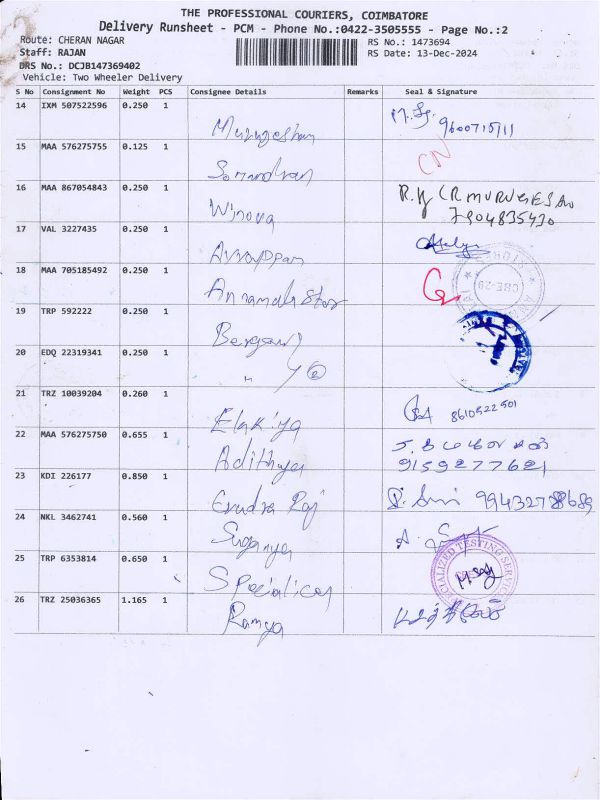 THE PROFESSIONAL COURIERS, COIMBATORE
Delivery Runsheet - PCM - Phone No.:0422-3505555 - Page No.:2
Route: CHERAN NAGAR
RS No.: 1473694
Staff: RAJAN
RS Date: 13-Dec-2024
DRS No.: DCJB147369402
Vehicle: Two Wheeler Delivery
S No Consignment No Weight PCS Consignee Details Remarks Seal & Signature
14 IXM 507522596 0.250 1
Murugeshan 9600715111
15 MAA 576275755 0.125 1 CN
16 MAA 867054843 0.250 1
Winova 7904835430
17 VAL 3227435 0.250 1
Ayyappan
18 MAA 705185492 0.250 1
Annamalai Stor CBE-29
19 TRP 592222 0.250 1
20 EDQ 22319341 0.250 1
21 TRZ 10039204 0.260 1
Elakiya 8610522501
22 MAA 576275750 0.655 1
Adithya 9159277621
23 KDI 226177 0.850 1
24 NKL 3462741 0.560 1
Suganya
25 TRP 6353814 0.650 1
TESTING SERVICE
26 TRZ 25036365 1.165 1
Ramya